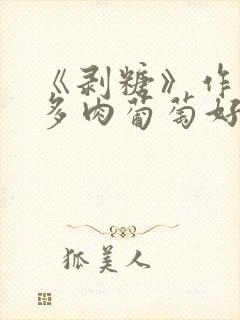 《剥糖》作
多肉葡萄好
狐美人